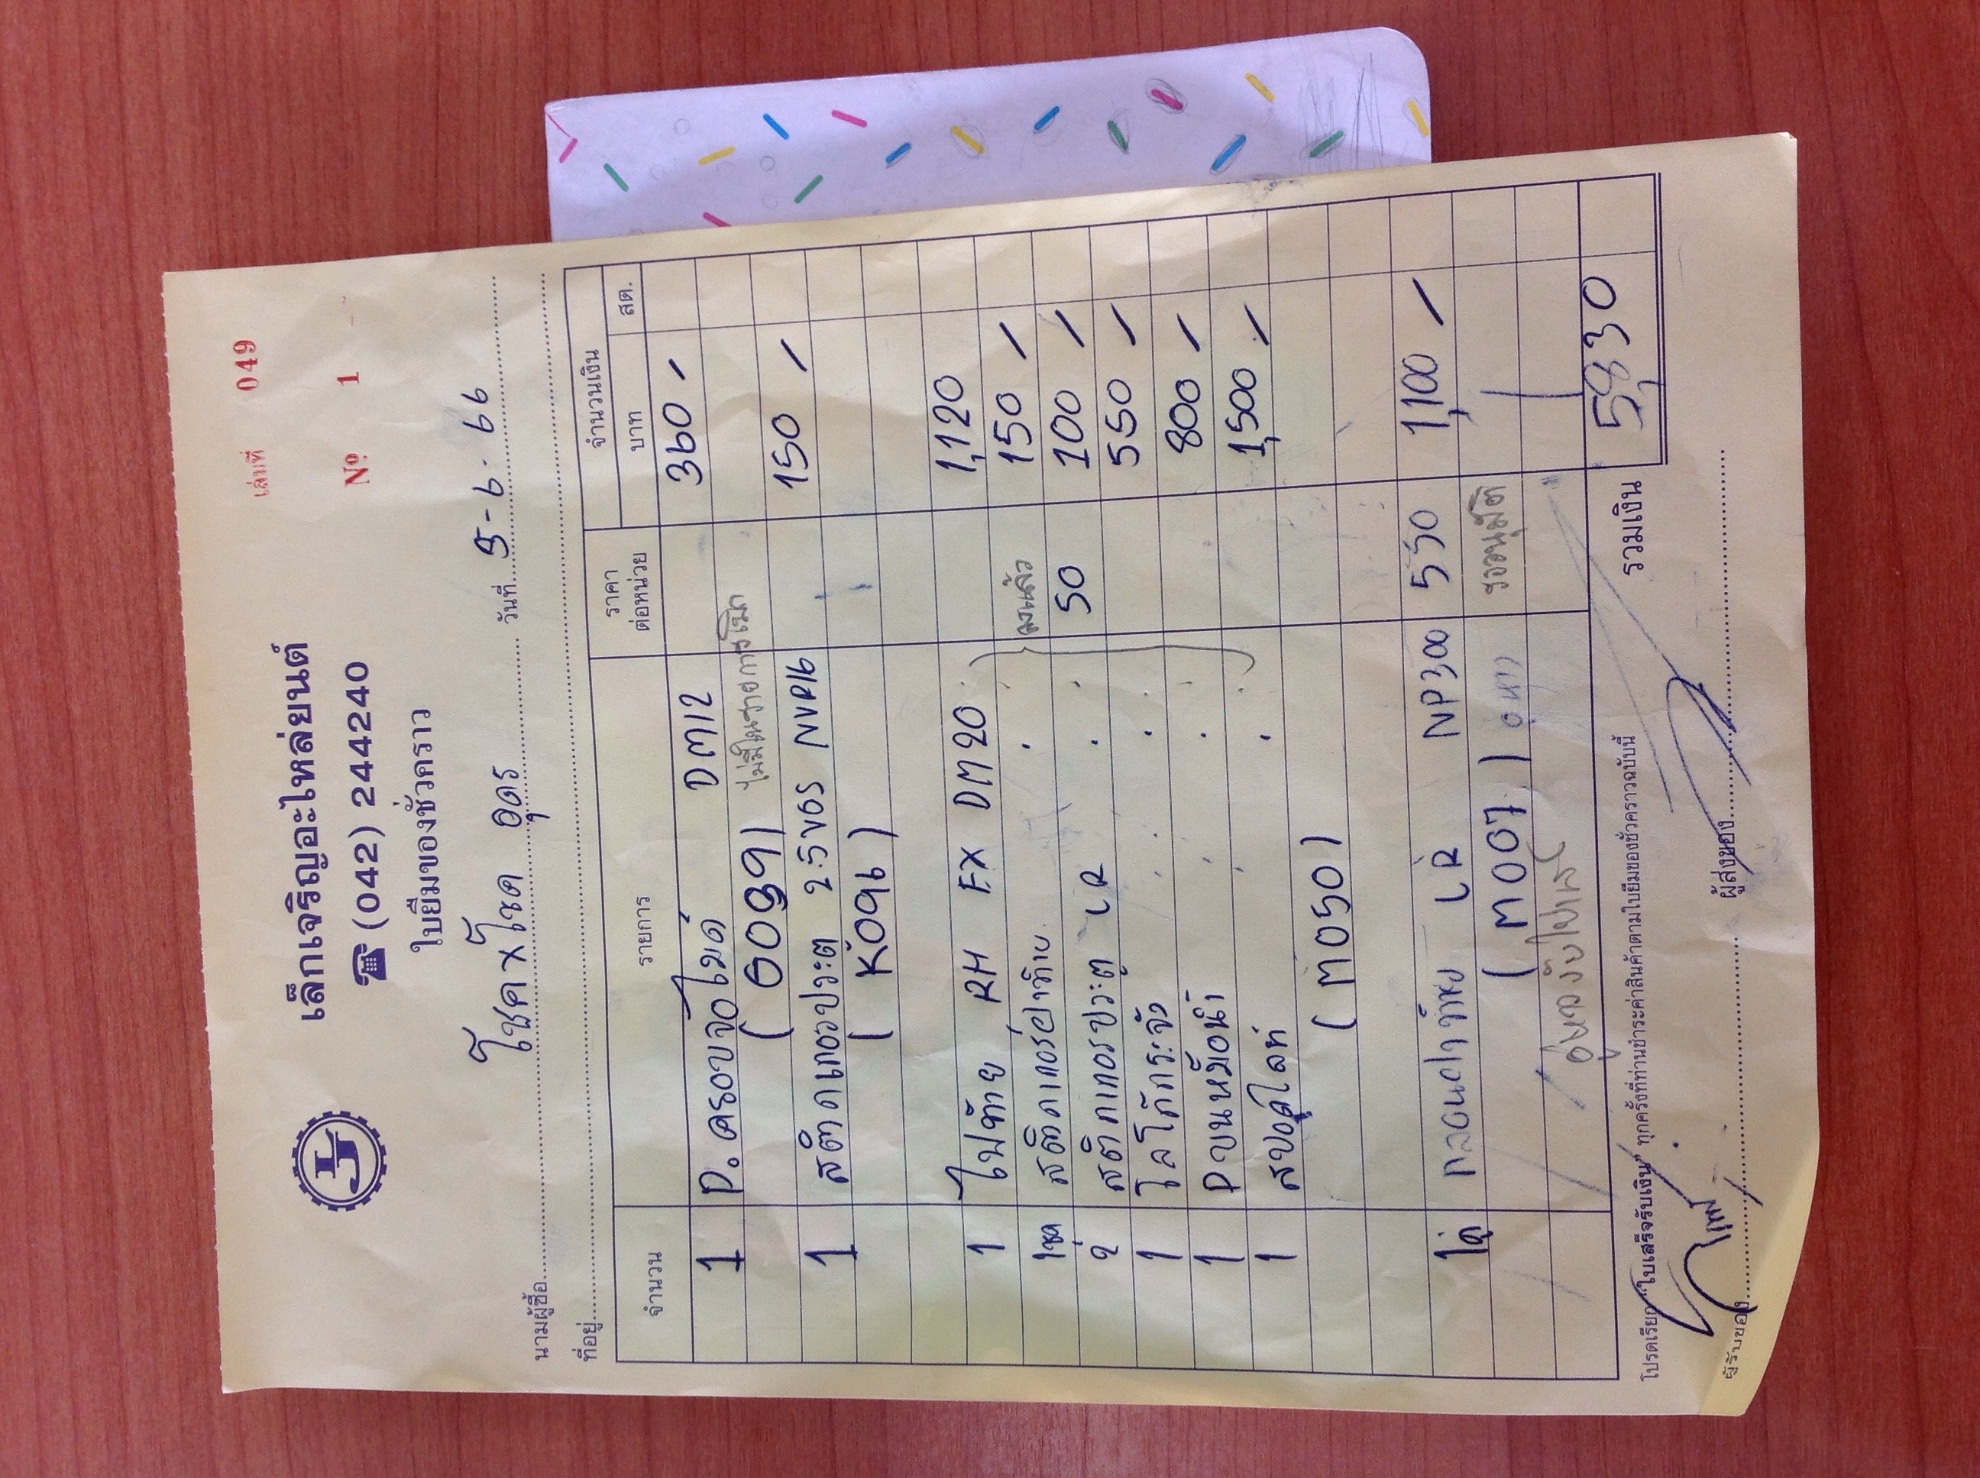 เล่มที่ 049
เล็กเจริญอะไหล่ยนต์
☎ (042) 244240
№ 1
ใบยืมของชั่วคราว
นามผู้ซื้อ โชคxโชค อุดร วันที่ 5-6-66
ที่อยู่
จำนวน รายการ ราคาต่อหน่วย จำนวนเงิน บาท สต.
1 P.ครอบจอไมด์ DM12 360 -
(G039) ไม่มีในรายการ
1 สติกเกอรประตู 2.5VGS NVR16 150 -
(K096)
1 ไฟท้าย RH EX DM20 1,120
1ชุด สติกเกอร์ฝาท้าย 150 -
ลงแล้ว
2 สติกเกอรประตู LR 50 100 -
1 โลโก้กระจัง 550 -
1 Pบนหม้อน้ำ 800 -
1 สปอตไลท์ 1,500 -
(M050)
1คู่ กลอนฝาท้าย LR NP300 550 1,100 -
(M007) รออนุมัติ
รวมเงิน 5,830
โปรดเรียก "ใบเสร็จรับเงิน" ทุกครั้งที่ท่านชำระค่าสินค้าตามใบยืมของชั่วคราวฉบับนี้
ผู้รับของ ผู้ส่งของ